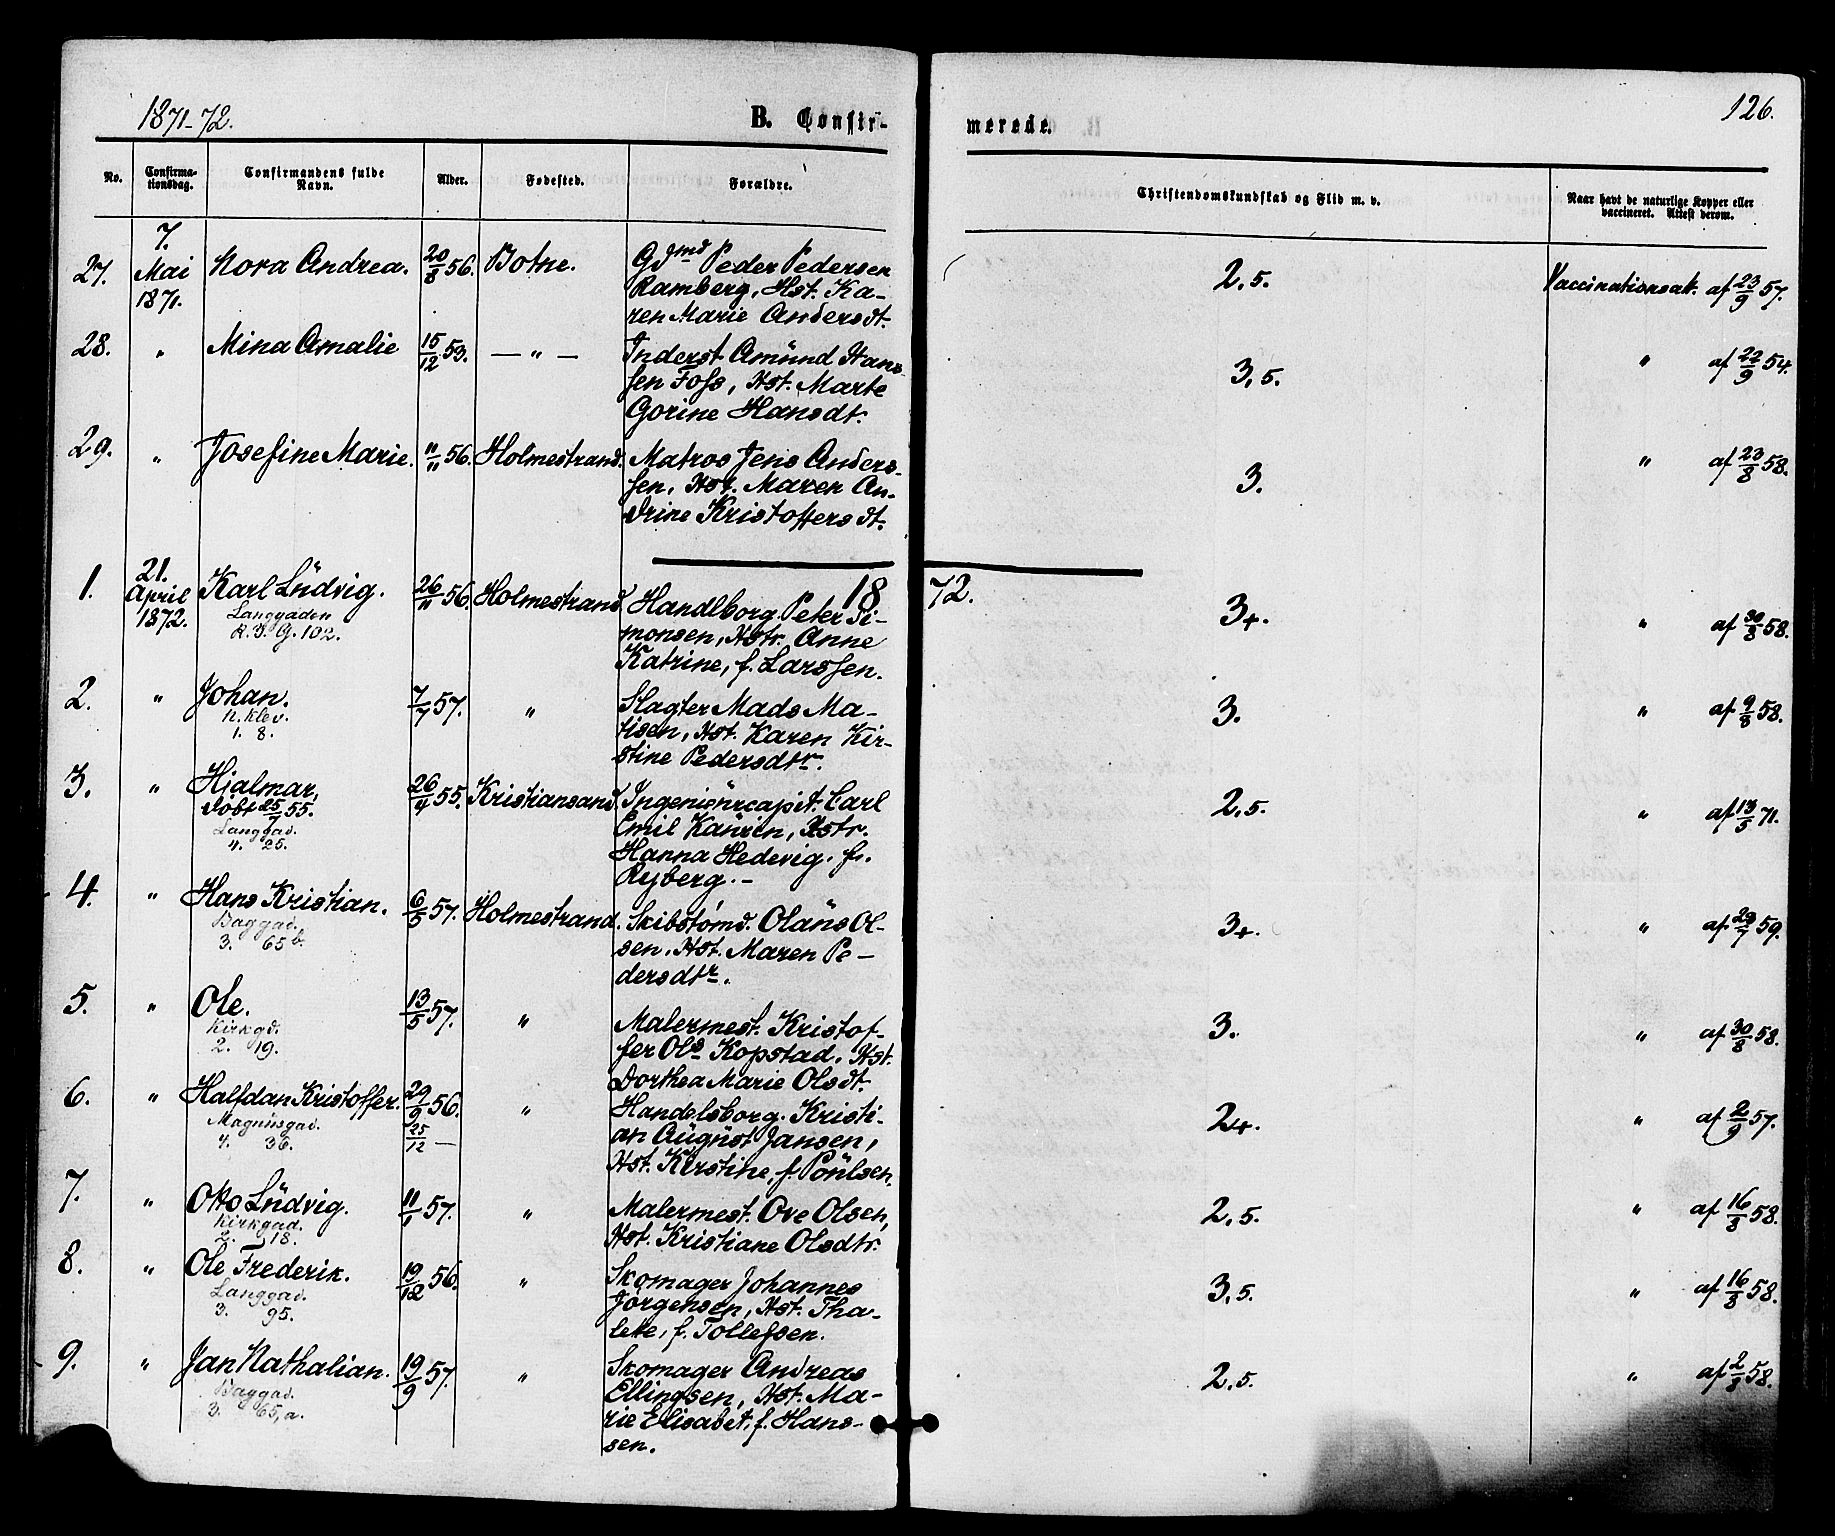 1871-72.
B. Confir-
merede.
126.
No.
Confirma-
tionsdag.
Confirmandens fulde
Navn.
Alder.
Fødested.
Forældre.
Christendomskundskab og Flid m. v.
Naar havt de naturlige Kopper eller
vaccineret. Attest derom.
27.
7.
Mai
1871.
Nora Andrea.
20/8 56.
Botne.
Gdmd Peder Pedersen
Ramberg, Hst. Ka-
ren Marie Andersdt.
2,5.
Vaccinationsatt. af 23/9 57.
28.
"
Mina Amalie
15/12 53.
— " —
Inderst Amund Hans-
sen Foss, Hst. Marte
Gorine Hansdt.
3,5.
" af 22/9 54.
29.
"
Josefine Marie.
11/11 56.
Holmestrand.
Matros Jens Anders-
sen, Hst. Maren An-
drine Kristoffersdt.
3.
" af 23/8 58.
1872.
1.
21.
April
1872.
Karl Ludvig.
Langgaden
R. 3. G. 102.
26/11 56.
Holmestrand
Handlborg. Peter Si-
monsen, Hstr. Anne
Katrine, f. Larssen.
3+.
" af 30/8 58.
2.
"
Johan.
N. Klev.
1. 8.
7/7 57.
"
Slagter Mads Ma-
tisen, Hst. Karen Kir-
stine Pedersdtr.
3.
" af 9/8 58.
3.
"
Hjalmar,
døbt 25/7 55.
Langgad.
4. 25.
26/4 55.
Kristiansand.
Ingeniörcapit. Carl
Emil Kaurin, Hstr.
Hanna Hedevig. f.
Ryberg.-
2,5.
" af 13/5 71.
4.
"
Hans Kristian.
Baggad.
3. 65 b.
6/5 57.
Holmestrand.
Skibstømd. Olaus Ol-
sen, Hst. Maren Pe-
dersdtr.
3+.
" af 29/7 59.
5.
"
Ole.
Kirkgd.
2. 19.
13/5 57.
"
Malermest. Kristof-
fer Ols Kopstad, Hst.
Dorthea Marie Olsdt.
3.
" af 30/8 58.
6.
"
Halfdan Kristoffer.
Magnusgad.
4. 36.
29/9 56.
25/12 —
"
Handelsborg. Kristi-
an August Jansen,
Hst. Kirstine, f. Poulsen.
2+.
" af 2/9 57.
7.
"
Otto Ludvig.
Kirkgad.
2. 18.
11/1 57.
"
Malermest. Ove Olsen,
Hst. Kristiane Olsdtr.
2,5.
" af 16/8 58.
8.
"
Ole Frederik.
Langgad.
3. 95.
19/12 56.
"
Skomager Johannes
Jörgensen, Hst. Tha-
lete, f. Tollefsen.
3,5.
" af 16/8 58.
9.
"
Jan Nathalian.
Baggad.
3. 65, a.
19/9 57.
"
Skomager Andreas
Ellingsen, Hst. Ma-
rie Elisabet, f. Hans-
sen.
2,5.
" af 2/8 58.